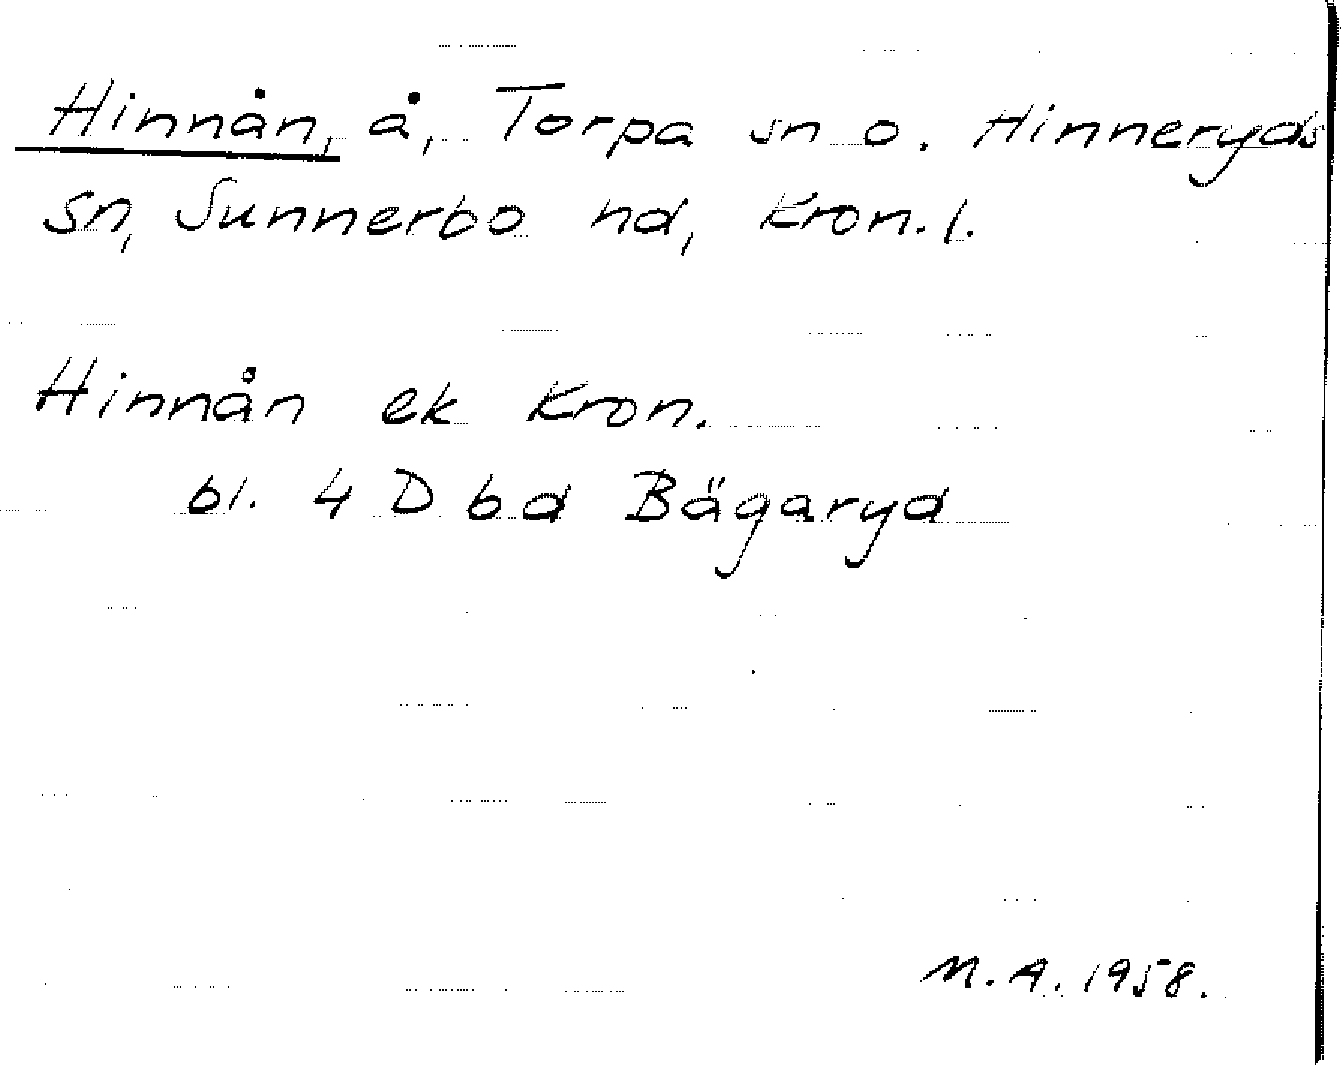 Hinnån, å, Torpa sn o. Hinneryds
sn, Sunnerbo hd, Kron. l.
Hinnån ek Kron.
bl. 4 D bd Bägaryd
M. A. 1958.